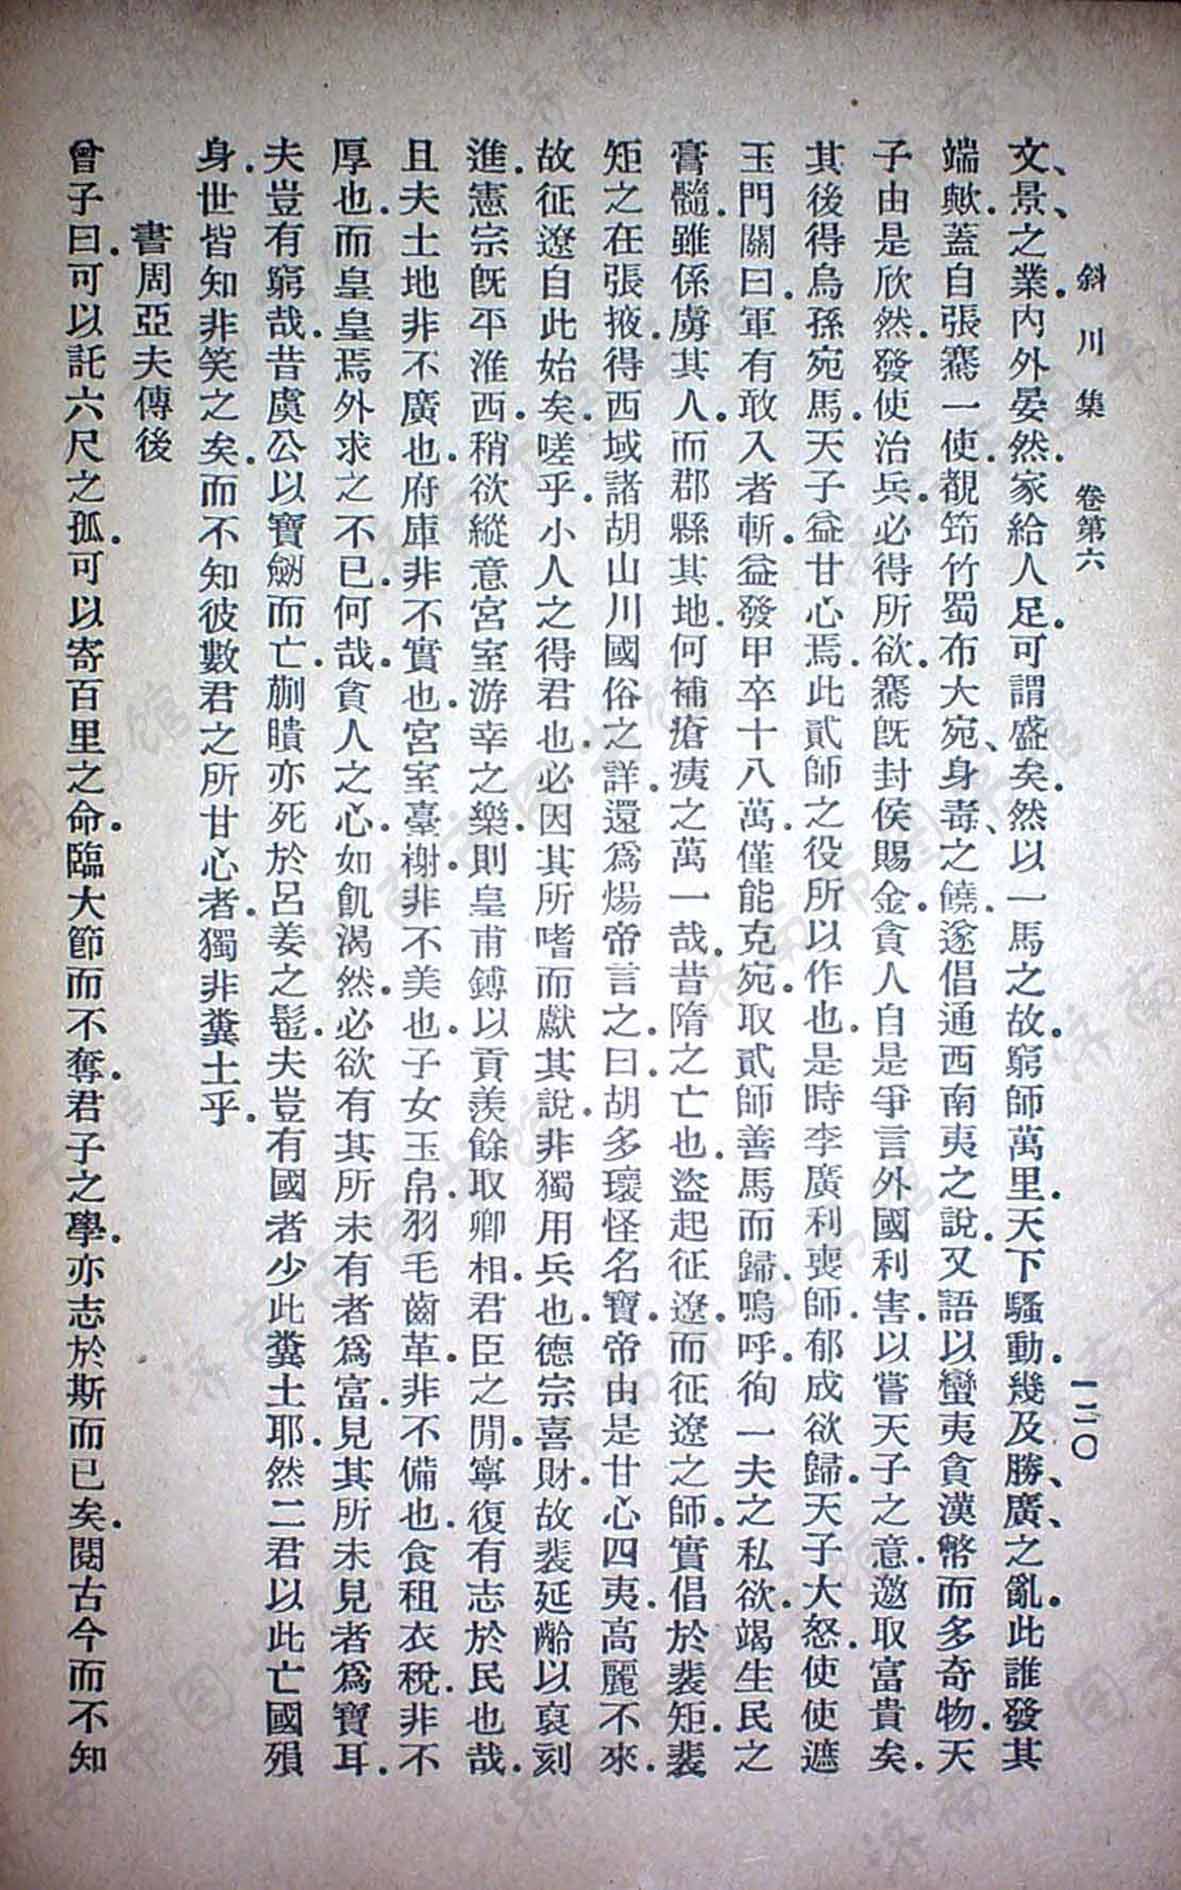 斜川集　卷第六　一二〇
文、景之業。內外晏然。家給人足。可謂盛矣。然以一馬之故。窮師萬里。天下騷動。幾及勝、廣之亂。此誰發其
端歟。蓋自張騫一使。覩筇竹蜀布大宛、身毒、之饒。遂倡通西南夷之說。又語以蠻夷貪漢幣而多奇物。天
子由是欣然。發使治兵。必得所欲。騫旣封侯賜金。貪人自是爭言外國利害。以嘗天子之意。邀取富貴矣。
其後得烏孫宛馬。天子益甘心焉。此貳師之役所以作也。是時李廣利喪師。郁成欲歸。天子大怒。使使遮
玉門關曰。軍有敢入者斬。益發甲卒十八萬。僅能克宛。取貳師善馬而歸。嗚呼。徇一夫之私欲。竭生民之
膏髓。雖係虜其人。而郡縣其地。何補瘡痍之萬一哉。昔隋之亡也。盜起征遼。而征遼之師。實倡於裴矩。裴
矩之在張掖。得西域諸胡山川國俗之詳。還爲煬帝言之。曰。胡多瓌怪名寶。帝由是甘心四夷。高麗不來。
故征遼自此始矣。嗟乎。小人之得君也。必因其所嗜而獻其說。非獨用兵也。德宗喜財。故裴延齡以裒刻
進。憲宗旣平淮西。稍欲縱意宮室游幸之樂。則皇甫鎛以貢羨餘取卿相。君臣之閒。寧復有志於民也哉。
且夫土地非不廣也。府庫非不實也。宮室臺榭。非不美也。子女玉帛。羽毛齒革。非不備也。食租衣稅。非不
厚也。而皇皇焉外求之不已。何哉。貪人之心。如飢渴然。必欲有其所未有者爲富。見其所未見者爲寶耳。
夫豈有窮哉。昔虞公以寶劒而亡。蒯聵亦死於呂姜之髢。夫豈有國者少此糞土耶。然二君以此亡國殞
身。世皆知非笑之矣。而不知彼數君之所甘心者。獨非糞土乎。
書周亞夫傳後
曾子曰。可以託六尺之孤。可以寄百里之命。臨大節而不奪。君子之學。亦志於斯而已矣。閱古今而不知